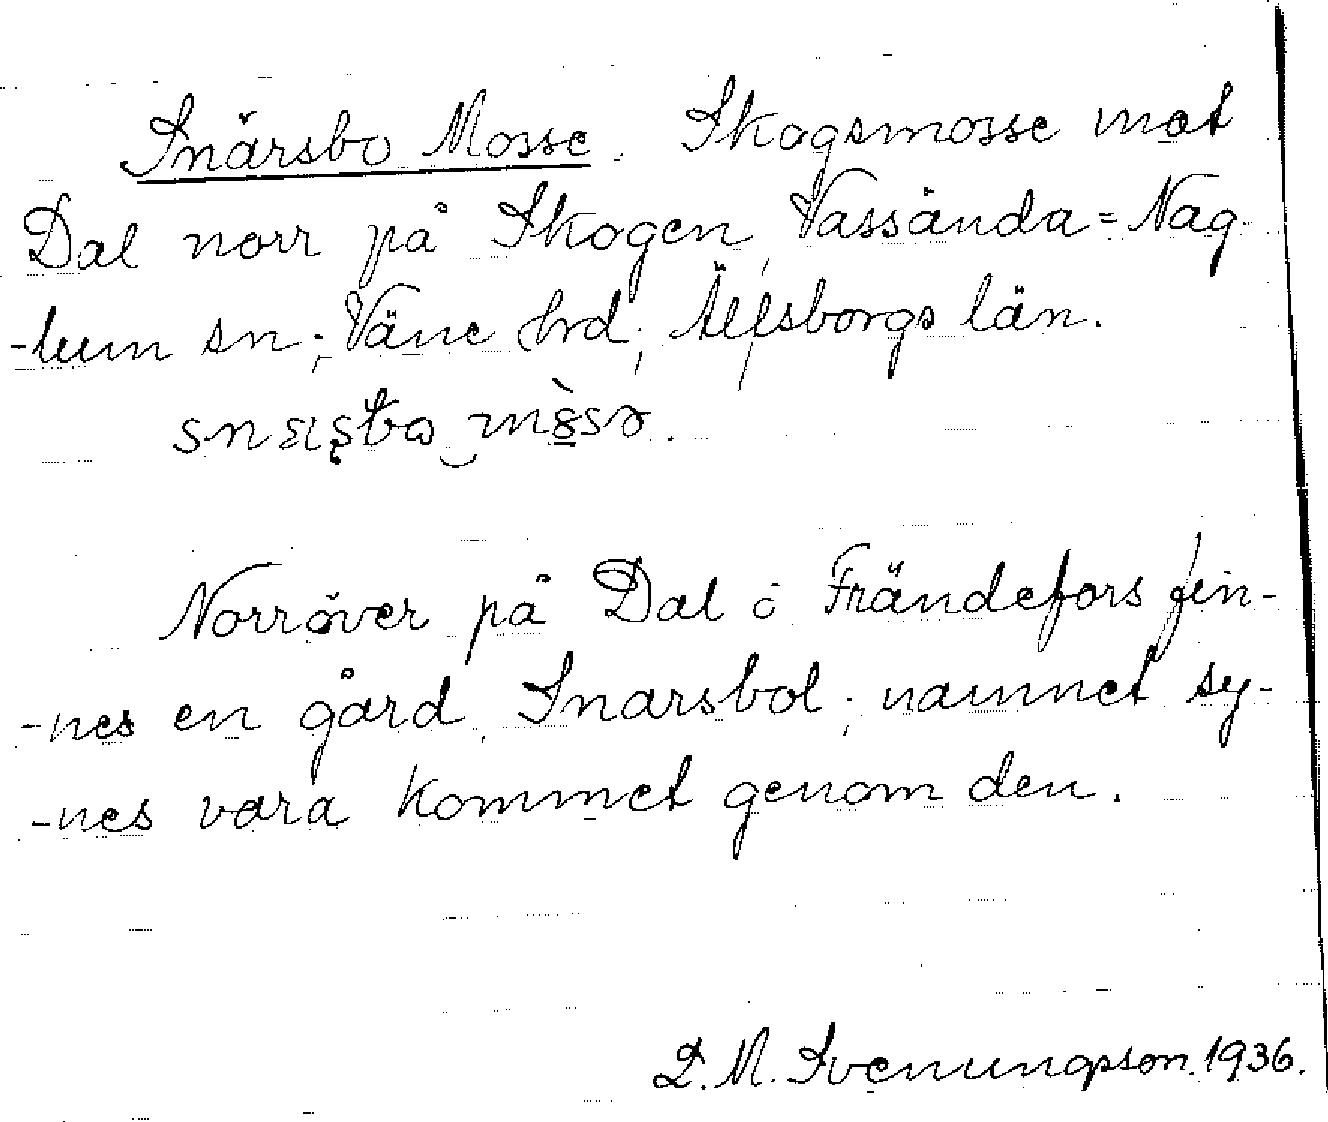 Snärsbo Mosse. Skogsmosse mot
Dal norr på Skogen, Vassända=Nag-
-lum sn; Väne hrd; Älfsborgs län.
Norröver på Dal i Frändefors fin-
-nes en gård, Snarsbol; namnet sy-
-nes vara kommet genom den.
D. M. Svenungsson. 1936.